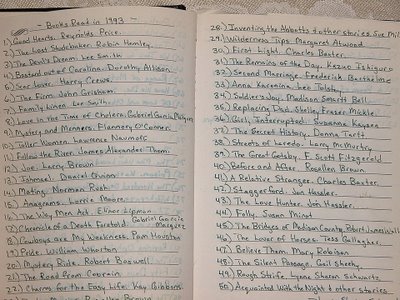 - Books Read in 1993 -
1.) Good Hearts. Reynolds Price.
2.) The Last Studebaker. Robin Hemley.
3.) The Devil's Dream. Lee Smith.
4.) Bastard out of Carolina. Dorothy Allison.
5.) Scar Lover. Harry Crews.
6.) The Firm. John Grisham.
7.) Family Linen. Lee Smith.
8.) Love in the Time of Cholera. Gabriel Garcia Marquez
9.) Mystery and Manners. Flannery O'Connor.
10.) Taller Women. Lawrence Naumoff.
11.) Follow the River. James Alexander Thom.
12.) Joe. Larry Brown.
13.) Ishmael. Daniel Quinn.
14.) Mating. Norman Rush.
15.) Anagrams. Lorrie Moore.
16.) The Way Men Act. Elinor Lipman
17.) Chronicle of a Death Foretold. Gabriel Garcia Marquez
18.) Cowboys are My Weakness. Pam Houston
19.) Pride. William Wharton.
20.) Mystery Ride. Robert Boswell
21.) The Road from Coorain.
22.) Charms for the Easy Life. Kay Gibbons
Brown
28.) Inventing the Abbotts & other stories. Sue Mil
29.) Wilderness Tips. Margaret Atwood
30.) First Light. Charles Baxter.
31.) The Remains of the Day. Kazuo Ishiguro
32.) Second Marriage. Frederick Barthelme
33.) Anna Karenina. Leo Tolstoy
34.) Soldier's Joy. Madison Smartt Bell.
35.) Replacing Dad. Shelley Fraser Mickle.
36.) Girl, Interrupted. Susanna Kaysen
37.) The Secret History. Donna Tartt
38.) Streets of Laredo. Larry McMurtry
39.) The Great Gatsby. F. Scott Fitzgerald
40.) Before and After. Rosellen Brown.
41.) A Relative Stranger. Charles Baxter.
42.) Staggerford. Jon Hassler.
43.) The Love Hunter. Jon Hassler.
44.) Folly. Susan Minot
45.) The Bridges of Madison County. Robert James Wall
46.) The Lover of Horses. Tess Gallagher.
47.) Believe Them. Mary Robison
48.) The Silent Passage. Gail Sheehy.
49.) Rough Strife. Lynne Sharon Schwartz
50.) Acquainted With the Night & other stories.